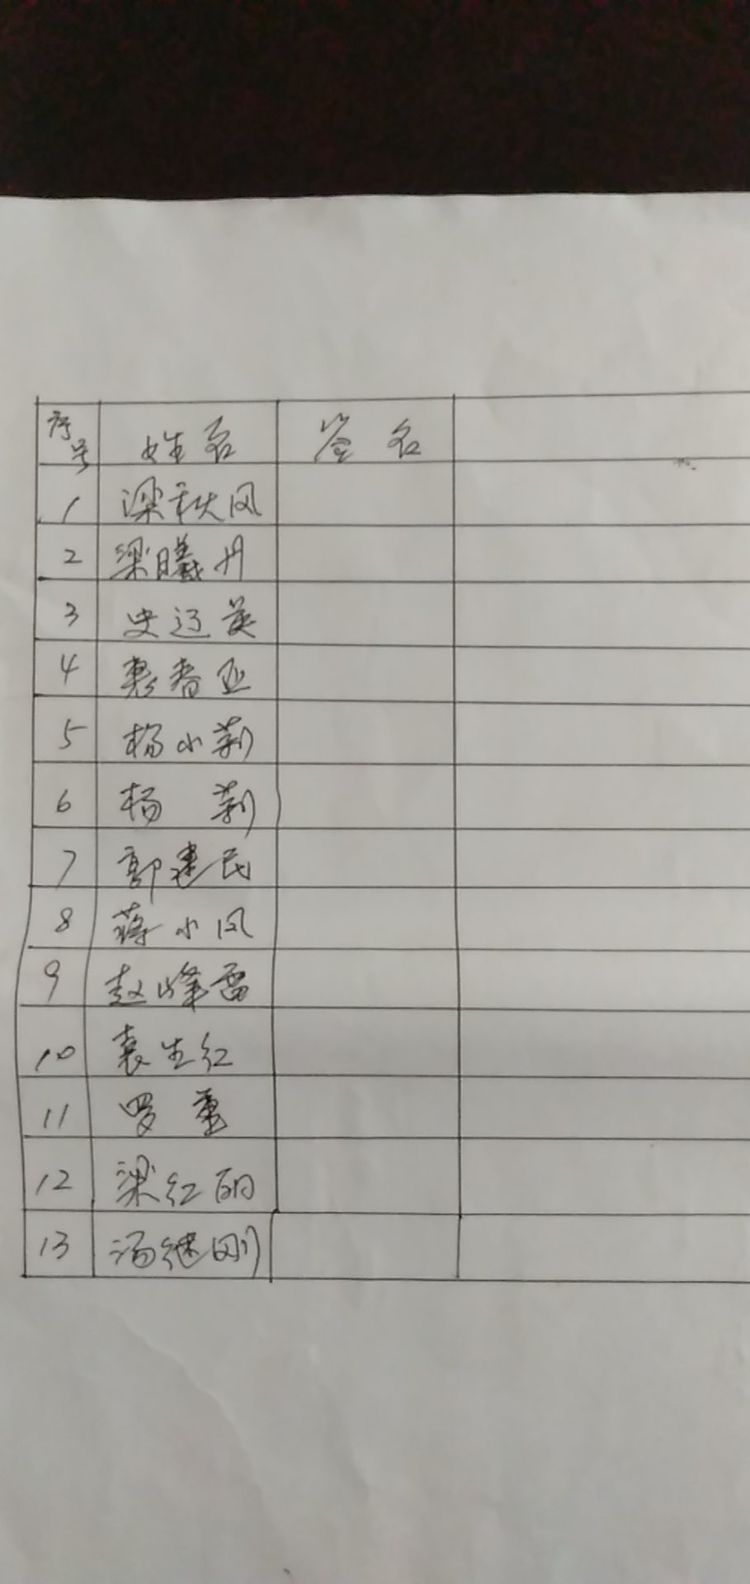 序号 姓名 签名
1 梁秋风
2 梁曦丹
3 史迈英
4 惠春亚
5 杨小莉
6 杨 莉
7 郭建民
8 蒋小风
9 赵峰雷
10 袁生红
11 罗
12 梁红丽
13 汤继刚